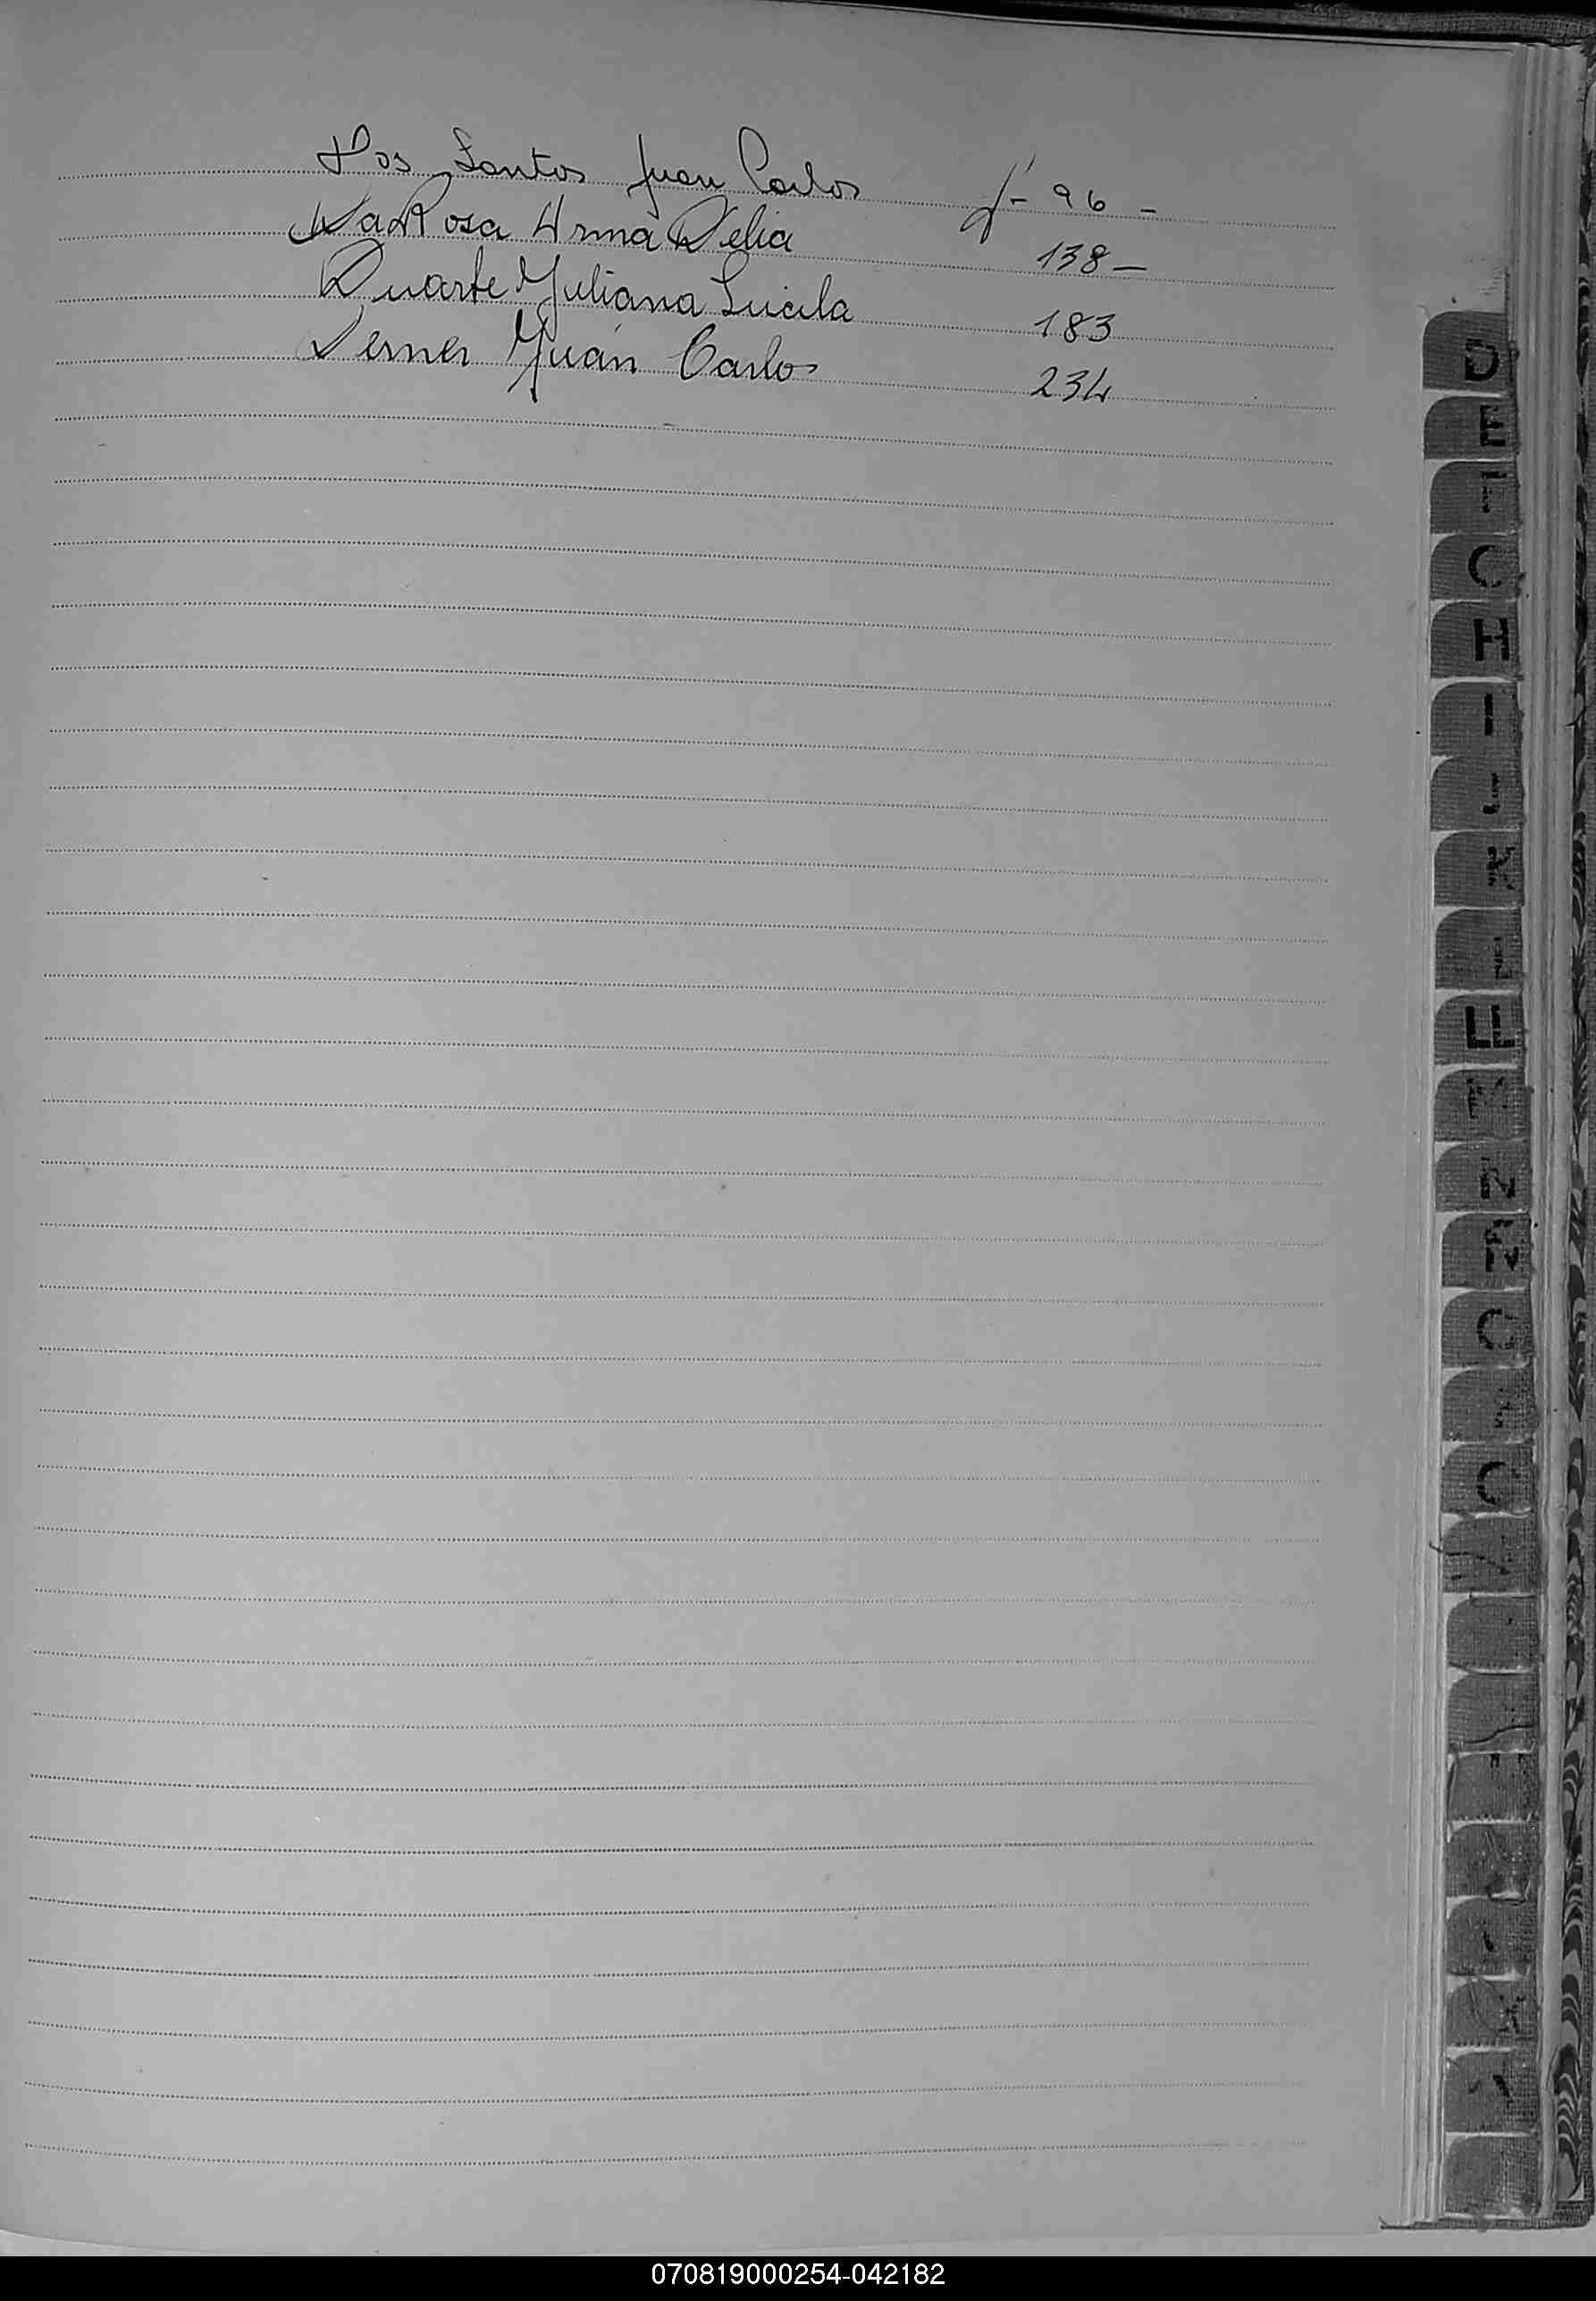 Dos Santos Juan Carlos f- 96 -
Da Rosa Irma Delia 138 -
Duarte Juliana Lucila 183
Derner Juan Carlos 234
D
E
H
I
070819000254-042182